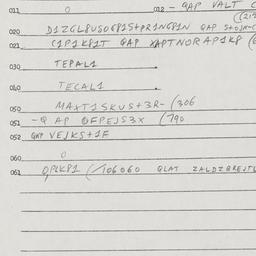 011 0 012 - QAP VALT C
020 D1ZGL8USO681S+PR1NG81N QAP S+O
021 C1P1K81T QAP XAPTNORAP1K8
030 TEPAL1
040 TECAL1
050 MAXT1SKUS+3R- (306
051 -Q AP QFPEJS3X (790
052 QAP VEJKS+1F
060 0
061 QPCK81 (/106060 QLAT ZALDZBREJTU